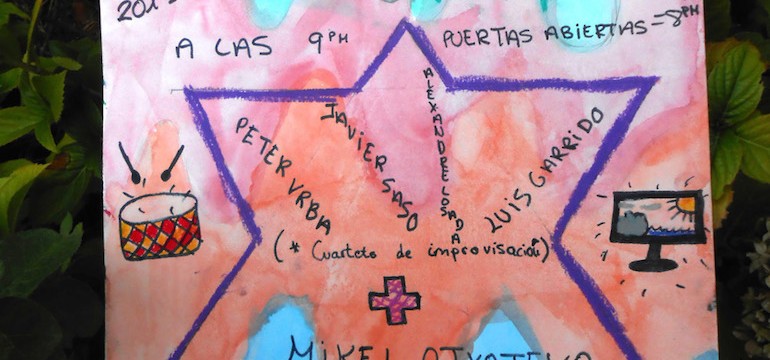 A LAS 9PH
PUERTAS ABIERTAS = 8PH
PETER VRBA
JAVIER SASO
ALEXANDRE LOSADA
LUIS GARRIDO
(* Cuarteto de improvisación)
MIKEL